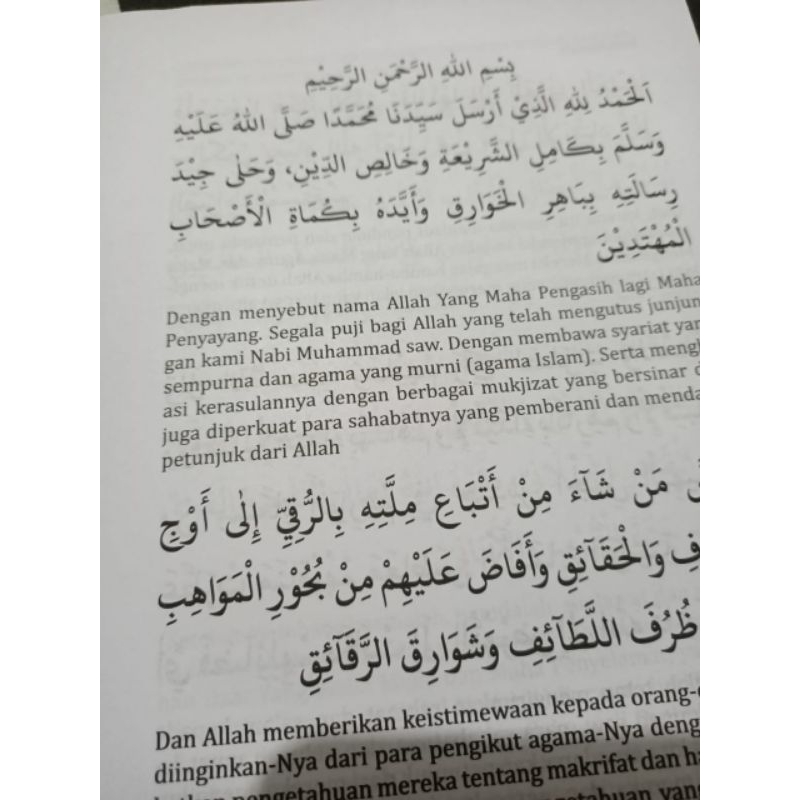 بِسْمِ اللهِ الرَّحْمَنِ الرَّحِيْمِ
اَلْحَمْدُ لِلّٰهِ الَّذِيْ أَرْسَلَ سَيِّدَنَا مُحَمَّدًا صَلَّى اللهُ عَلَيْهِ
وَسَلَّمَ بِكَامِلِ الشَّرِيْعَةِ وَخَالِصِ الدِّيْنِ، وَحَلَى جِيْدَ
رِسَالَتِهِ بِبَاهِرِ الْخَوَارِقِ وَأَيَّدَهُ بِكُمَاةِ الْأَصْحَابِ
الْمُهْتَدِيْنَ
Dengan menyebut nama Allah Yang Maha Pengasih lagi Maha
Penyayang. Segala puji bagi Allah yang telah mengutus junjun
gan kami Nabi Muhammad saw. Dengan membawa syariat yan
sempurna dan agama yang murni (agama Islam). Serta mengh
asi kerasulannya dengan berbagai mukjizat yang bersinar d
juga diperkuat para sahabatnya yang pemberani dan menda
petunjuk dari Allah
مَنْ شَآءَ مِنْ أَتْبَاعِ مِلَّتِهِ بِالرُّقِيِّ إِلٰى أَوْجِ
فِ وَالْحَقَآئِقِ وَأَفَاضَ عَلَيْهِمْ مِنْ بُحُوْرِ الْمَوَاهِبِ
ظُرُفَ اللَّطَآئِفِ وَشَوَارِقَ الرَّقَآئِقِ
Dan Allah memberikan keistimewaan kepada orang-
diinginkan-Nya dari para pengikut agama-Nya deng
pengetahuan mereka tentang makrifat dan ha